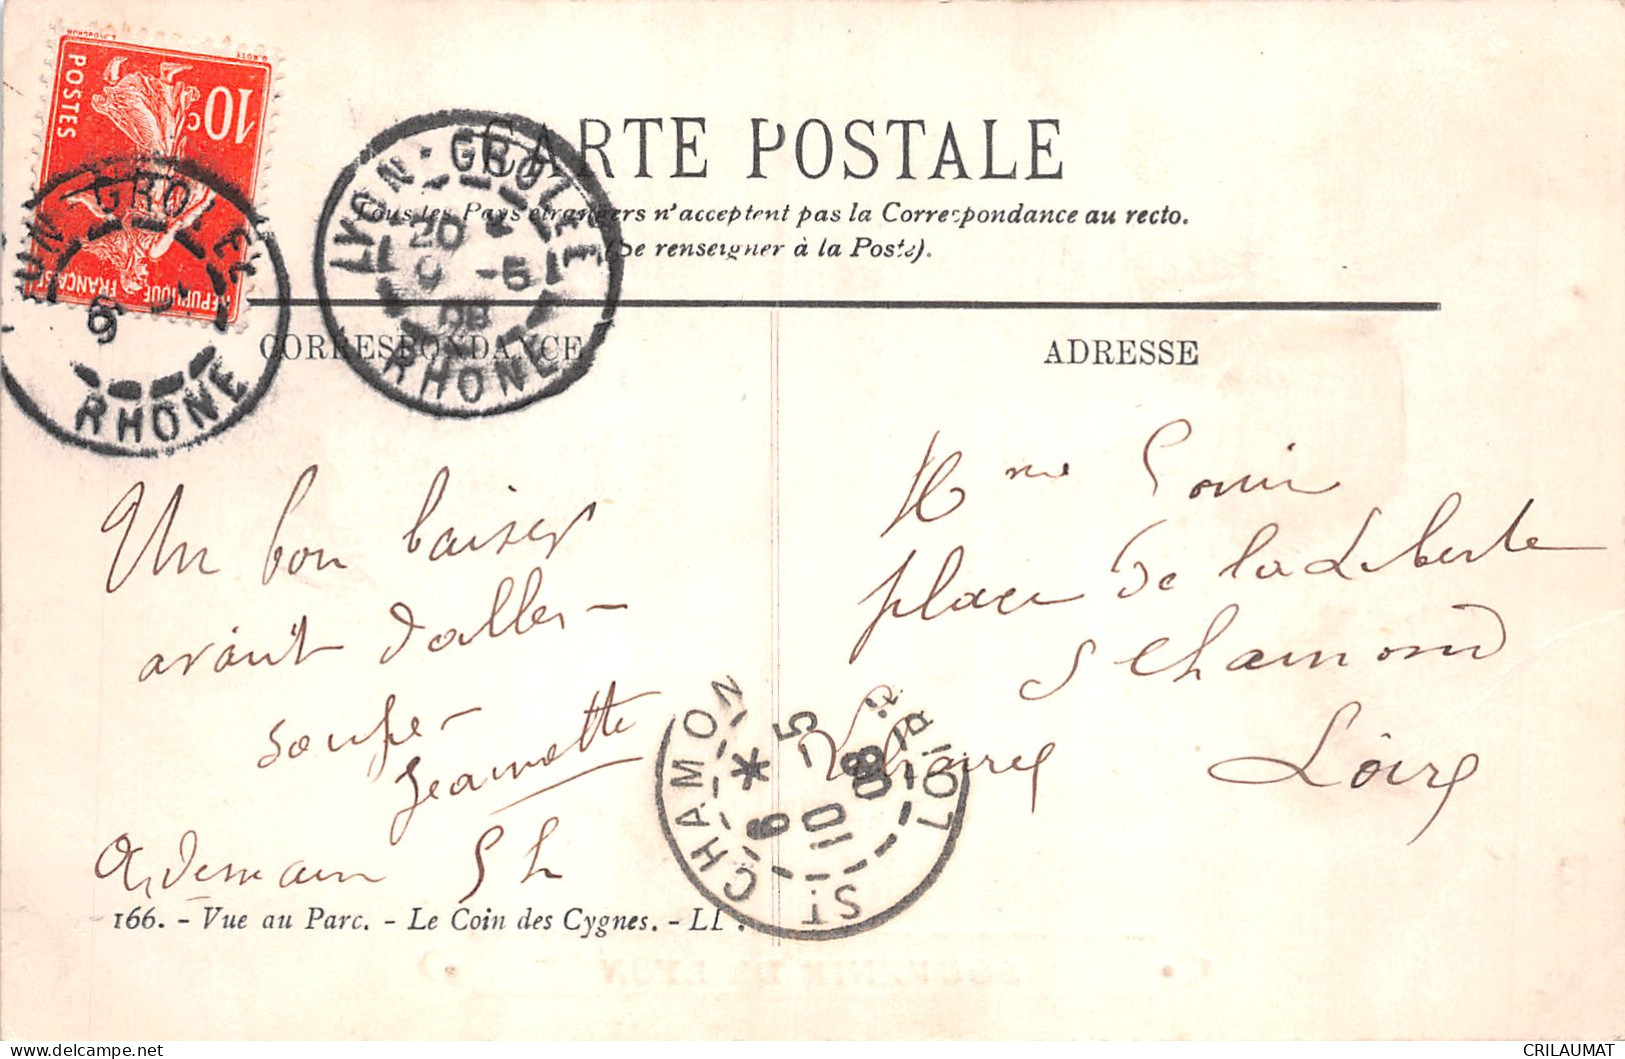 10c
POSTES
REPUBLIQUE FRANÇAISE
LYON-GROLEE
6
RHONE
LYON-GROLEE
20
9 -5
08
RHONE
CARTE POSTALE
Tous les Pays étrangers n'acceptent pas la Correspondance au recto.
(Se renseigner à la Poste).
CORRESPONDANCE
ADRESSE
Un bon baiser
avant d'aller
souper
Jeannette
A demain 5 h
Mme
place de la Liberte
S Chamond
Loire
ST CHAMOND
LOIRE
* 9 -5
10
08
166. - Vue au Parc. - Le Coin des Cygnes. - LL.
SOUVENIR DE LYON
CRILAUMAT